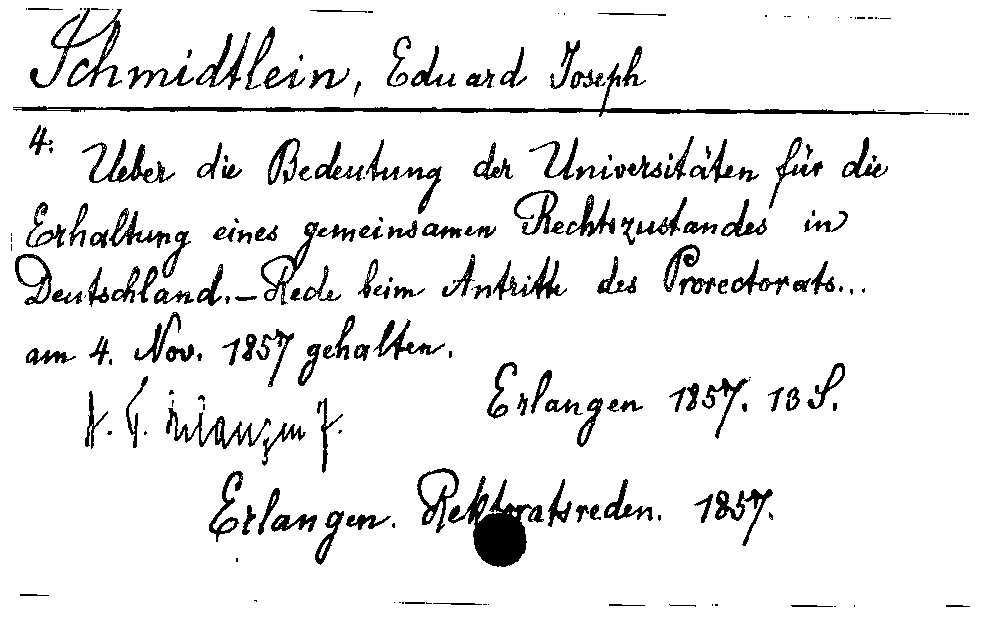 Schmidtlein, Eduard Joseph
4. Ueber die Bedeutung der Universitäten für die
Erhaltung eines gemeinsamen Rechtszustandes in
Deutschland.—Rede beim Antritte des Prorectorats...
am 4. Nov. 1857 gehalten.
Erlangen 1857. 13 S.
Erlangen
Erlangen. Rektoratsreden. 1857.